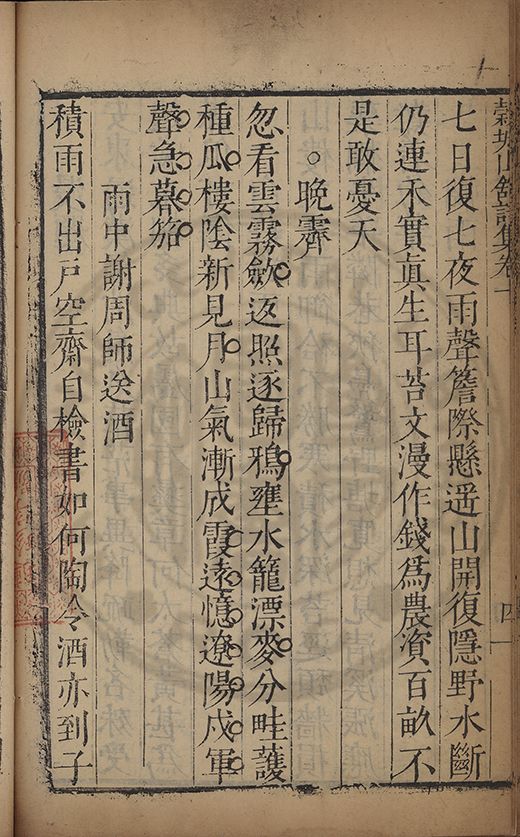 穀城山館詩集卷一
四一
七日復七夜雨聲簷際懸遥山開復隱野水斷
仍連禾實真生耳苔文漫作錢爲農資百畝不
是敢憂天
○晚霽
忽看雲霧斂返照逐歸鴉壅水籠漂麥分畦護
種瓜樓陰新見月山氣漸成霞遠憶遼陽戍軍
聲急暮笳
雨中謝周師送酒
積雨不出戶空齋自檢書如何陶令酒亦到子